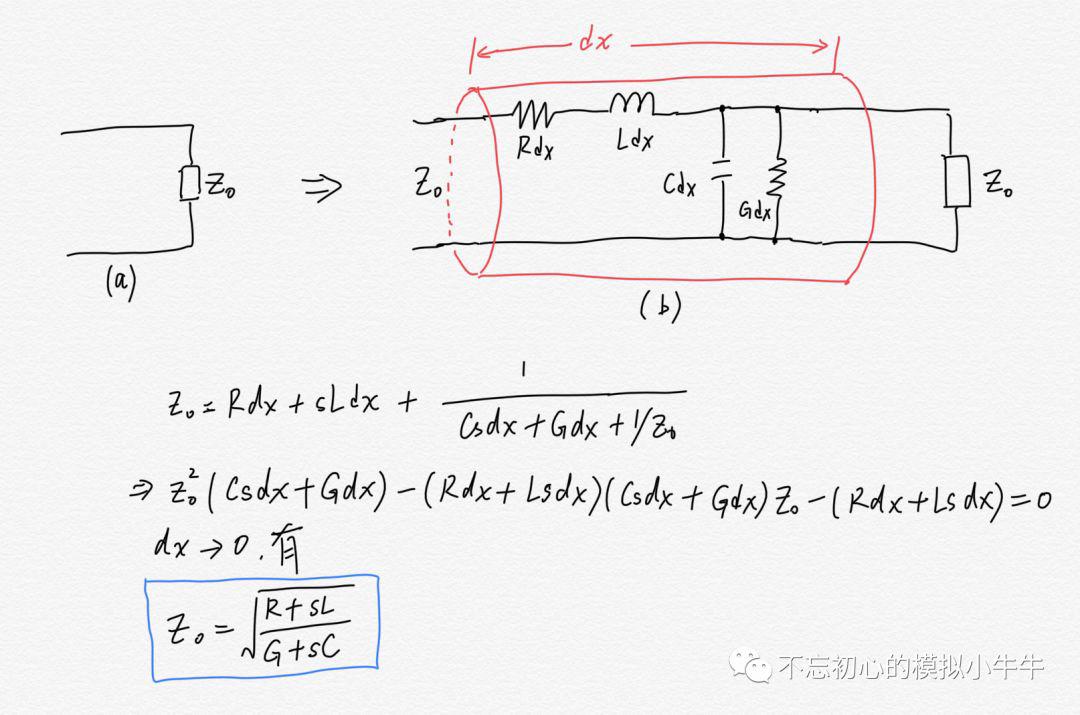 dx
Rdx
Ldx
Z₀
Z₀
Cdx
Gdx
Z₀
(a)
(b)
Z₀ = Rdx + sLdx + 1/(Csdx + Gdx + 1/Z₀)
⇒ Z₀²(Csdx + Gdx) - (Rdx + Lsdx)(Csdx + Gdx)Z₀ - (Rdx + Lsdx) = 0
dx → 0 . 有
Z₀ = √((R + sL)/(G + sC))
不忘初心的模拟小牛牛